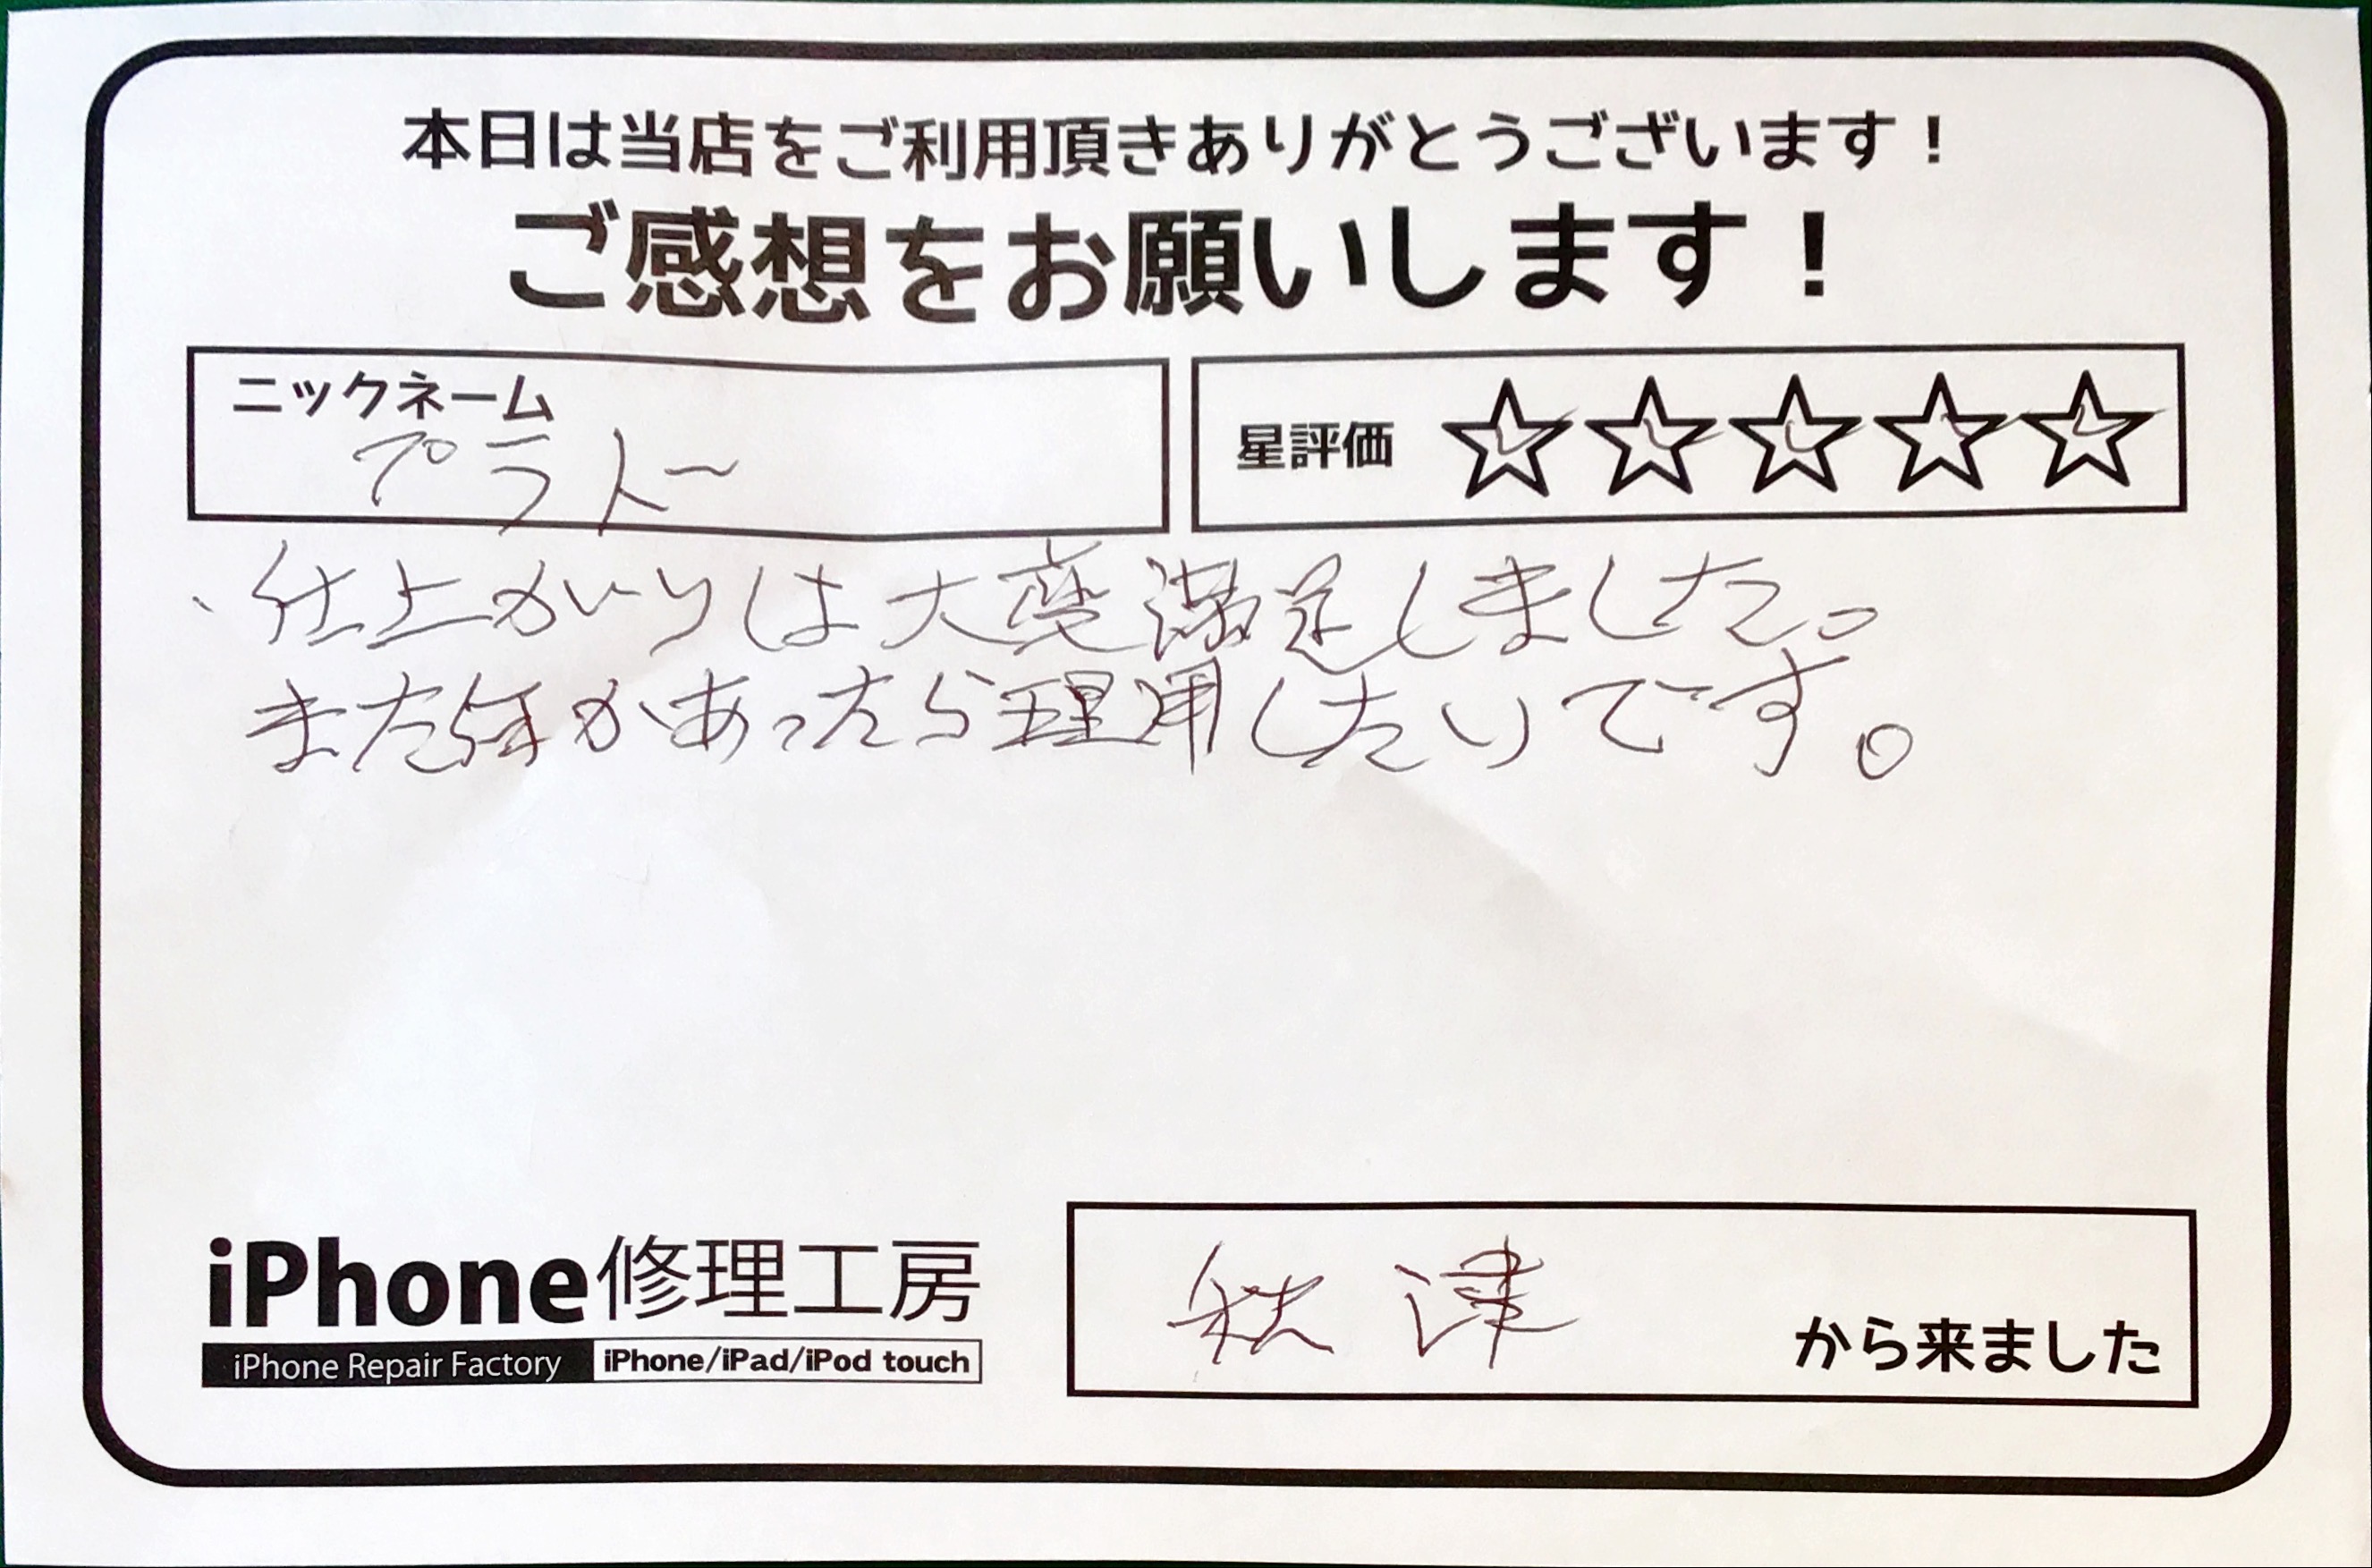 本日は当店をご利用頂きありがとうございます！
ご感想をお願いします！
ニックネーム
プラトー
星評価 ☆☆☆☆☆
、仕上がりは大変満足しました。
また何かあったら理用したいです。
iPhone修理工房
iPhone Repair Factory iPhone/iPad/iPod touch
秋津 から来ました